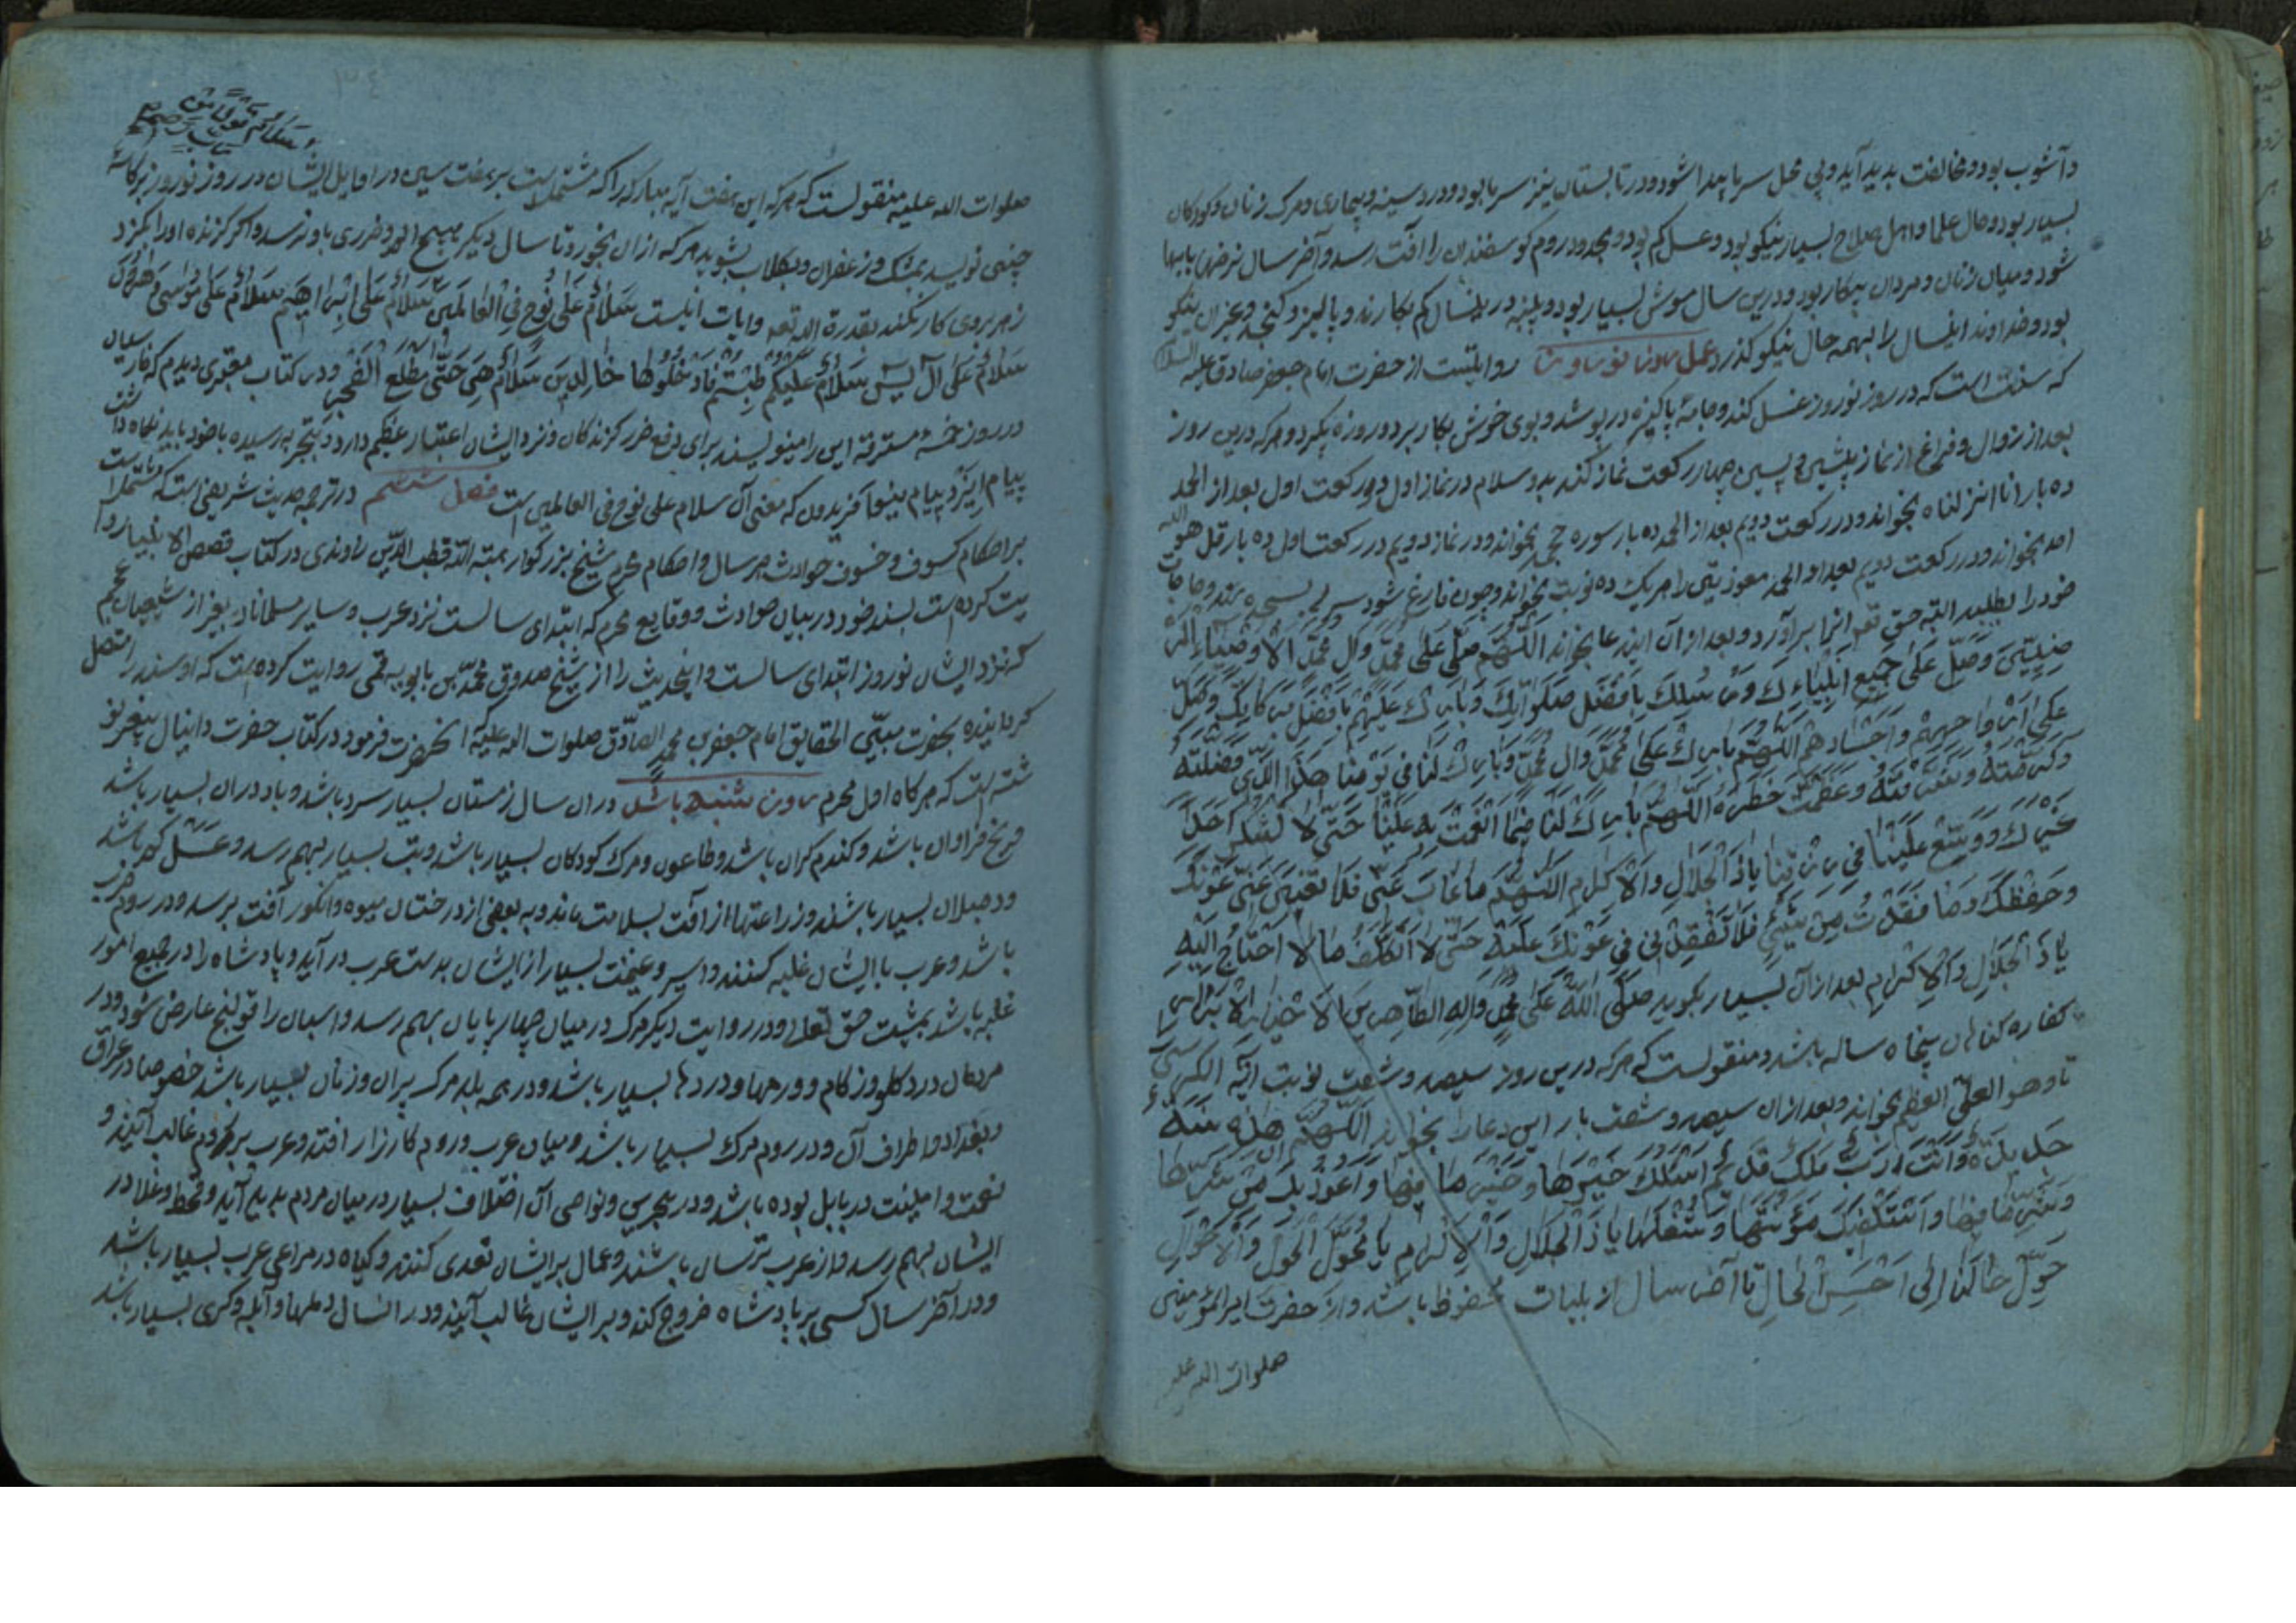 و آشوب بود و مخالفت پدید آید و بی محل سرما پیدا شود و در تابستان نیز سرما بود و درد سینه و بیماری و مرک زنان و کودکان
بسیار بود و حال علما و اهل صلاح بسیار نیکو بود و عسل کم بود و بحدود روم کوسفندان را آفت رسد و آخر سال نرخها
شود و میان زنان و مردان پیکار بود و درین سال موش بسیار بود و پنبه درینسال کم بکارند و پالیز و کنجد و نیکو
بود و خداوند اینسال را بهمه حال نیکو کذرد عمل روز نوروز روایتست از حضرت امام جعفر صادق علیه السلام
که سنت است که در روز نوروز غسل کند و جامهٔ پاکیزه در پوشد و بوی خوش بکار برد و روزه بکیرد و هر که درین روز
بعد از زوال و فراغ از نماز پیشین و پسین چهار رکعت نماز کند بدو سلام در نماز اول در رکعت اول بعد از الحمد
ده بار انا انزلناه بخواند و در رکعت دویم بعد از الحمد ده بار سوره جحد بخواند و در نماز دویم در رکعت اول ده بار قل هو الله
احد بخواند و در رکعت دویم بعد از الحمد معوذتین را هر یک ده نوبت بخواند و چون فارغ شود سر بسجده نهد و حاجات
خود را بطلبد البته حق تعه انرا برآورد و بعد از آن ایندعا بخواند اللهم صل علی محمد وال محمد الاوصیاء المر
ضیین وصل علی جمیع انبیاءك ورسلك بافضل صلواتك وبارك علیهم بافضل بركاتك وصل
علی ارواحهم واجسادهم اللهم بارك علی محمد وال محمد وبارك لنا فی یومنا هذا الذی فضلته
وكرمته وشرفته وعظمت خطره اللهم بارك لنا فیما انعمت به علینا حتی لا نشكر احدا
غیرك ووسع علینا فی رزقنا یا ذا الجلال والاكرام اللهم ما غاب عنی فلا یغیبن عنی عونك
وحفظك وما فقدت من شیئ فلا تفقدنی فی عونك علیه حتی لا اتكلف ما لا احتاج الیه
یا ذا الجلال والاكرام بعد از آن بسیار بکوید صلی الله علی محمد واله الطاهرین الاخیار الابرار
کفاره کناهان پنجاه ساله باشد و منقولست که هر که درین روز سیصد و شصت نوبت آیة الکرسی
تا وهو العلی العظیم بخواند و بعد از ان سیصد و شصت بار این دعا را بخواند اللهم ان هذه سنة
جدیدة وانت رب ملك قدیم اسئلك خیرها وخیر ما فیها واعوذ بك من شرها
وشر ما فیها واستكفیك مؤنتها وشغلها یا ذا الجلال والاكرام یا محول الحول والاحوال
حول حالنا الی احسن الحال تا آخر سال از بلیات محفوظ باشد و از حضرت امیر المؤمنین
صلوات الله علیه
صلوات الله علیه منقولست که هر که این هفت آیه مبارکه را که مشتملست بر هفت سین در اوایل ایشان در روز نوروز بر کاسهٔ
چینی نویسد بمشک و زعفران و بکلاب بشوید هر که از ان بخورد تا سال دیکر هیچ الم و ضرری باو نرسد و اکر کزنده او را بکزد
زهر بروی کار نکند بقدرة الله تعه وایات اینست سلام علی نوح فی العالمین سلام علی ابراهیم سلام علی موسی وهرون
سلام علی آل یس سلام علیكم طبتم فادخلوها خالدین سلام هی حتی مطلع الفجر و در کتاب معتبری دیدم که فارسیان
در روز خمسهٔ مسترقه این را مینویسند برای دفع ضرر کزندکان و نزد ایشان اعتبار عظیم دارد و بتجربه رسیده با خود باید نکاه داشت
پیام ایزد پیام بنیوا فریدون که معنی آن سلام علی نوح فی العالمین است فصل ششم در ترجمه حدیث شریفی است که مشتملست
بر احکام کسوف و خسوف حوادث هر سال و احکام محرم شیخ بزرکوار هبة الله قطب الدین راوندی در کتاب قصص الانبیا روا
یت کرده است بسند خود در بیان حوادث و وقایع محرم که ابتدای سالست نزد عرب و سایر مسلمانان بغیر از شیعیان عجم
که نزد ایشان نوروز ابتدای سالست و اینحدیث را از شیخ صدوق محمد بن بابویه قمی روایت کرده است که او سند را متصل
کردانیده بحضرت مبین الحقایق امام جعفر بن محمد الصادق صلوات الله علیه که انحضرت فرمود در کتاب حضرت دانیال پیغمبر نو
شته است که هر کاه اول محرم روز شنبه باشد در ان سال زمستان بسیار سرد باشد و باد در ان بسیار باشد
و یخ فراوان باشد و کندم کران باشد و طاعون و مرک کودکان بسیار باشد و تب بسیار بهم رسد و عسل کم باشد
و دمبلان بسیار باشد و زراعتها از آفت بسلامت ماند و به بعضی از درختان میوه و انکور آفت برسد و در روم حرب
باشد و عرب با ایشان غلبه کنند و اسیر و غنیمت بسیار از ایشان بدست عرب در آید و پادشاه را در جمیع امور
غلبه باشد بمشیت حق تعالی و در روایت دیکر مرک در میان چهار پایان بهم رسد و اسبان را قولنج عارض شود و در
مردمان درد کلو و زکام و ورمها و دردها بسیار باشد و در همه بلد مرک پیران و زنان بسیار باشد خصوصا در عراق
و بغداد و اطراف آن و در روم مرک بسیار باشد و میان عرب و روم کارزار افتد و عرب بر روم غالب آیند و
نعمت و امنیت در بابل بوده باشد و در بحرین و نواحی آن اختلاف بسیار در میان مردم پدید آید و قحط و غلا در
ایشان بهم رسد و از عرب ترسان باشند و عمال بر ایشان تعدی کنند و کیاه در مراعی عرب بسیار باشد
و در آخر سال کسی بر پادشاه خروج کند و بر ایشان غالب آیند و در انسال دملها و آبله و کری بسیار باشد